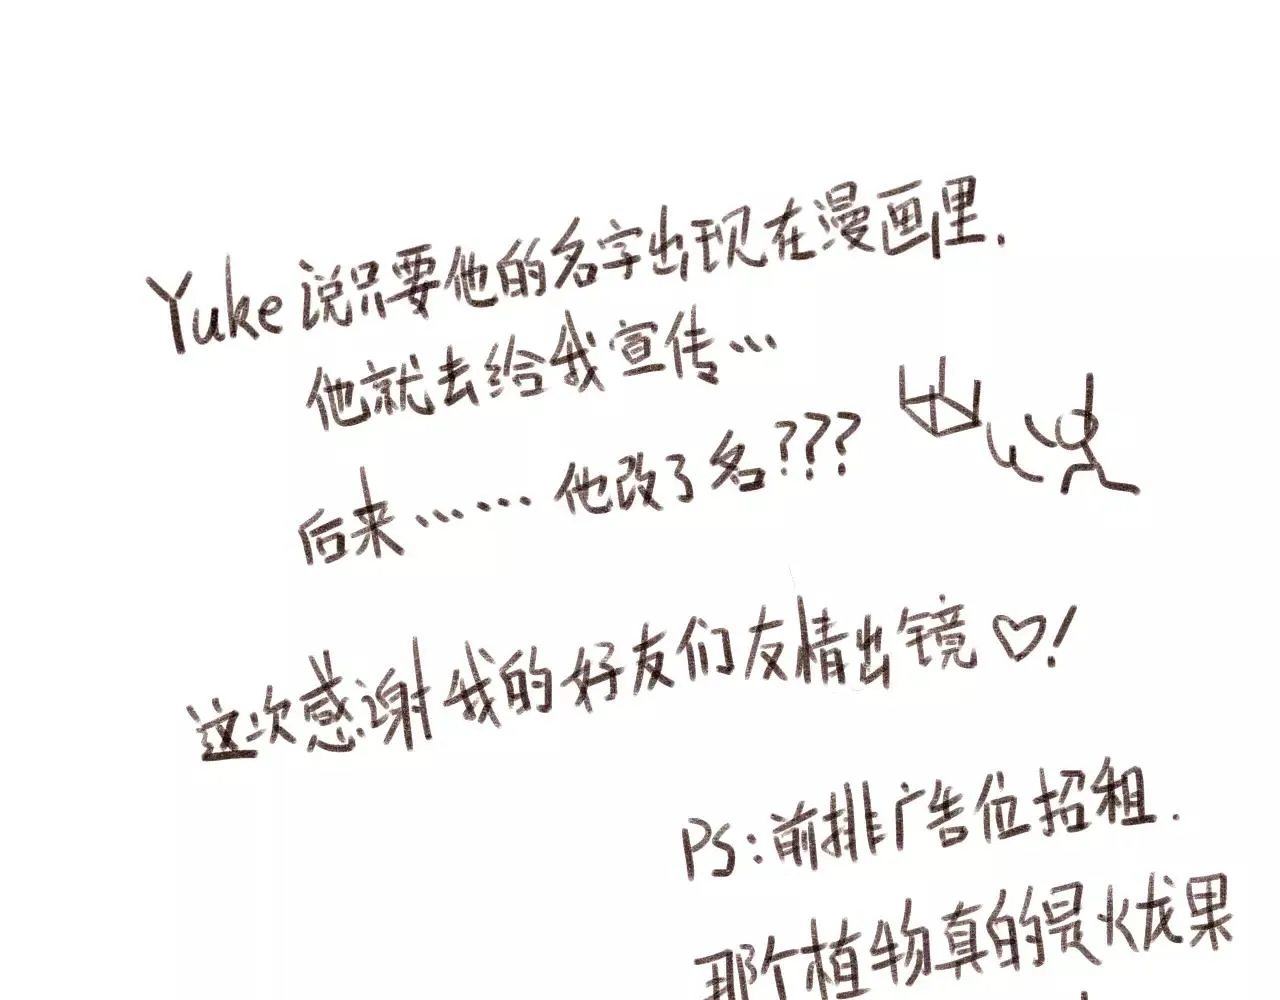 Yuke说只要他的名字出现在漫画里.
他就去给我宣传…
后来……他改了名???
这次感谢我的好友们友情出镜♡!
PS:前排广告位招租.
那个植物真的是火龙果